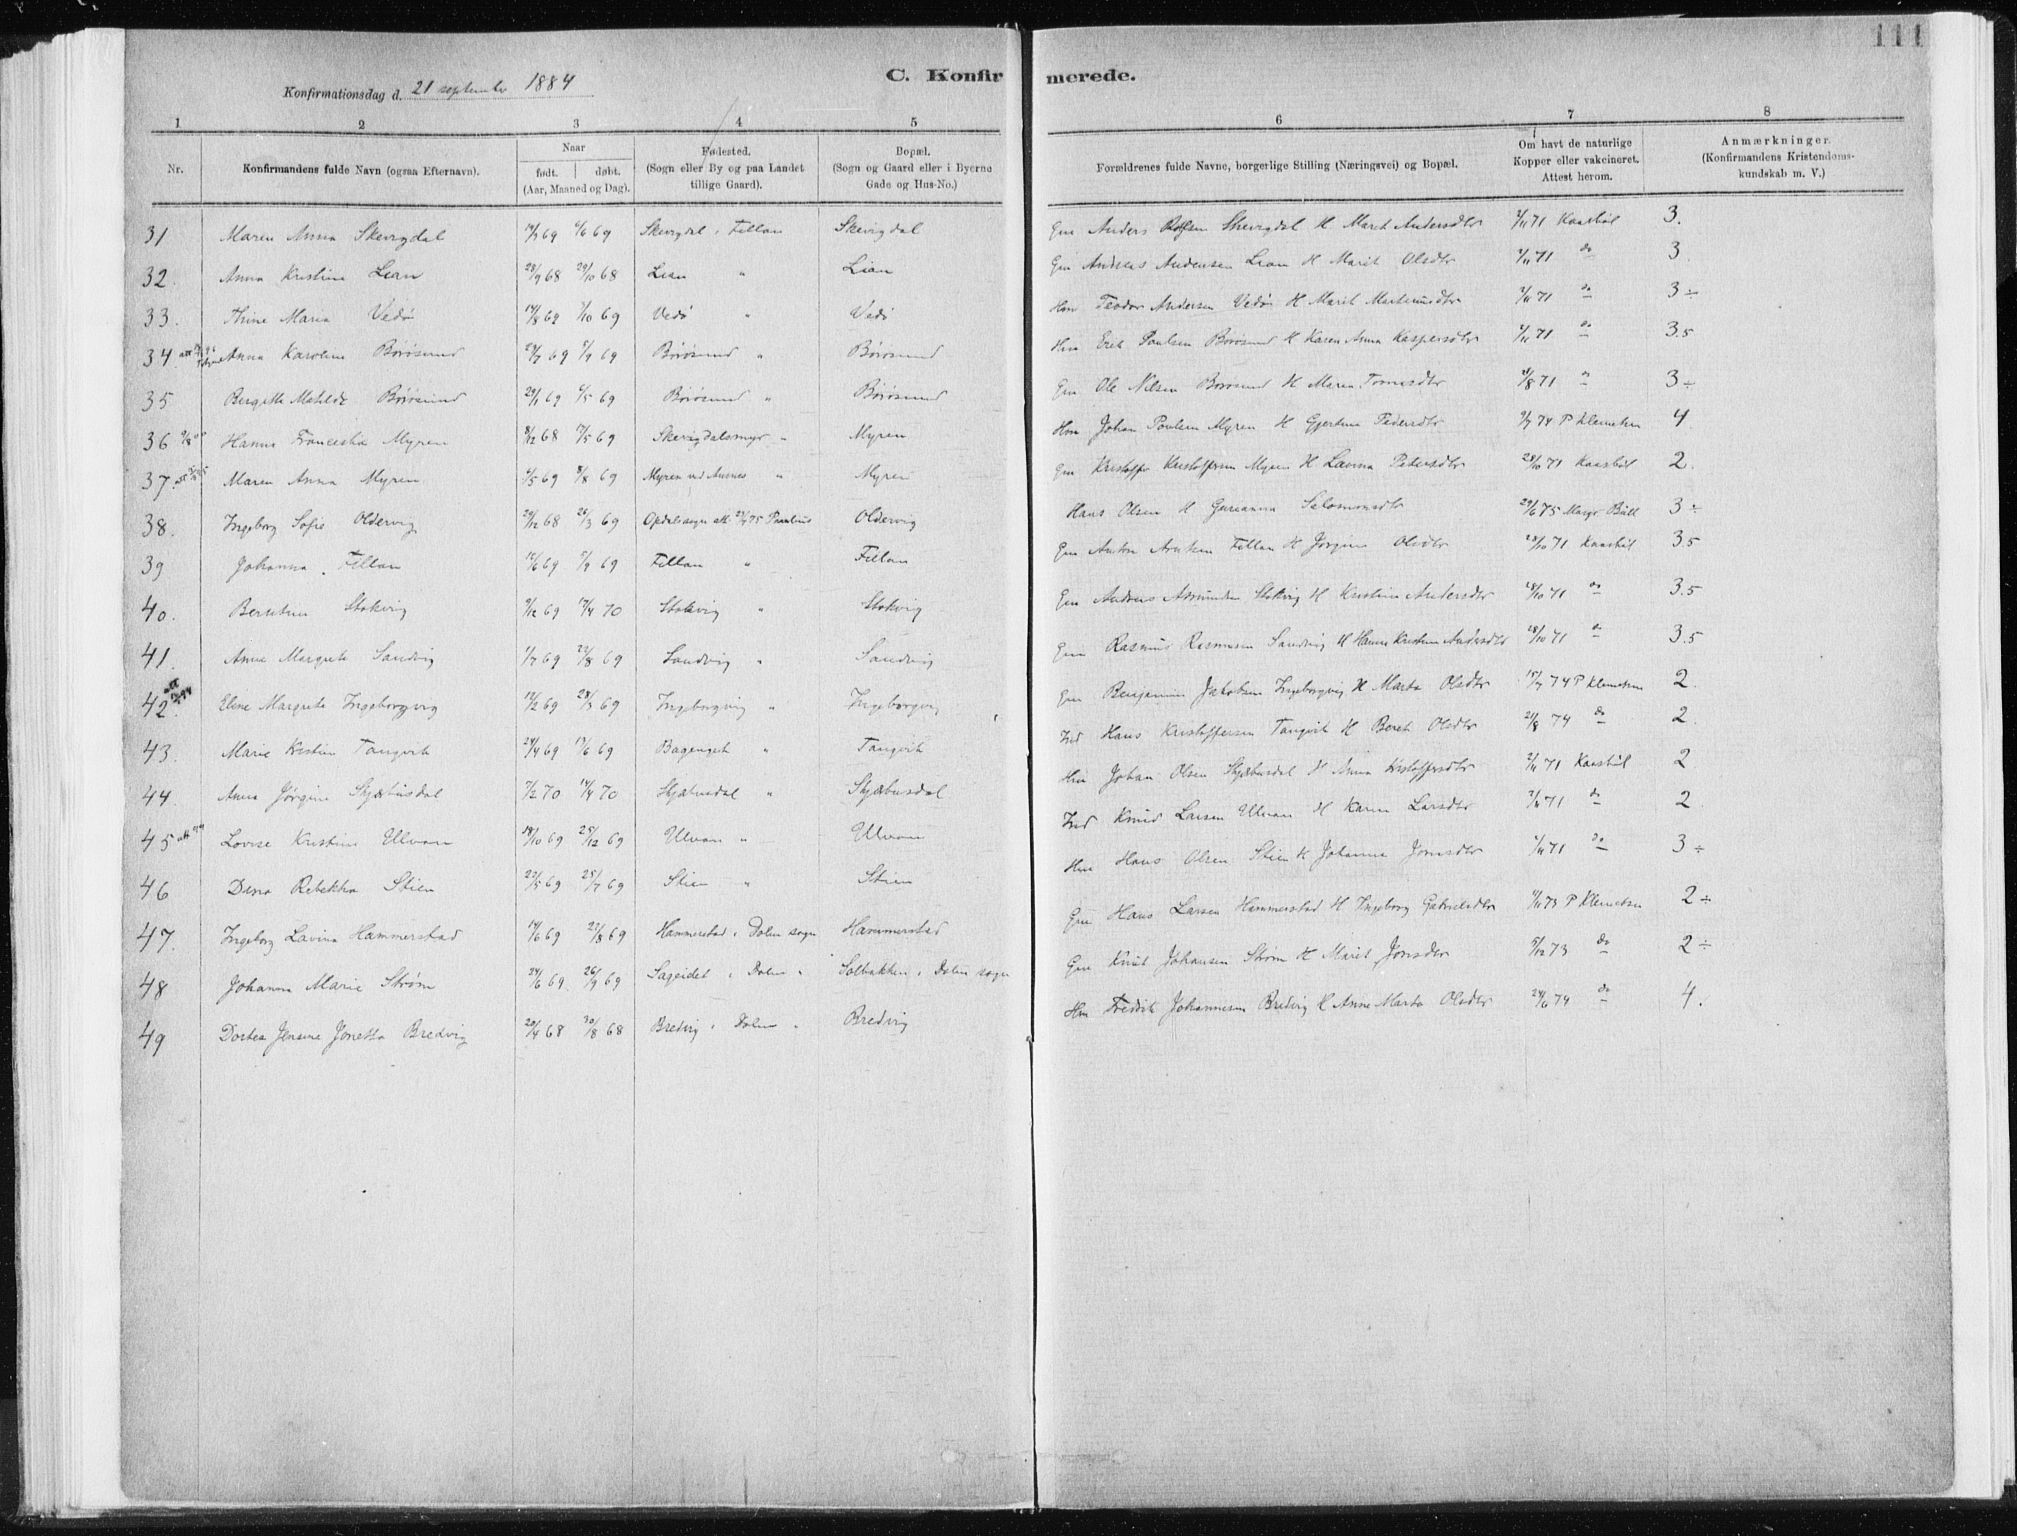 111
C. Konfirmerede.
Konfirmationsdag d. 21 september 1884
1 2 3 4 5 6 7 8
Nr. Konfirmandens fulde Navn (ogsaa Efternavn). Naar født. døbt. (Aar, Maaned og Dag). Fødested. (Sogn eller By og paa Landet tillige Gaard). Bopæl. (Sogn og Gaard eller i Byerne Gade og Hus-No.) Forældrenes fulde Navne, borgerlige Stilling (Næringsvei) og Bopæl. Om havt de naturlige Kopper eller vakcineret. Attest herom. Anmærkninger. (Konfirmandens Kristendomskundskab m. V.)
31 Maren Anna Skevigdal 69 6/6 69 Skevigdal i Fillan Skevigdal Gm Anders Skevigdal H Marit Andersdtr 71 Kaasbøl 3.
32. Anna Kristine Lian 28/9 68 29/10 68 Lian " Lian Gm Andreas Andersen Lian H Marit Olsdtr 71 do 3
33. Thine Maria Vedø 14/8 69 /10 69 Vedø " Vedø Hm Teodor Andersen Vedø H Marit Martinusdtr 71 do 3÷
34. Anna Karoline Børøsund 29/7 69 /9 69 Børøsund " Børøsund Hm Erik Paulsen Børøsund H Karen Anna Kaspersdtr 71 do 3.5
35 Bergitte Matilde Børøsund 29/1 69 /5 69 Børøsund " Børøsund Gm Ole Nilsen Børøsund H Maren Tomasdtr /8 71 " 3÷
36 Hanna Franceska Myren 8/12 68 /5 69 Skevigdalsmyr " Myren Hm Johan Paulsen Myren H Gjertine Pedersdtr 74 P Klemetsen 4
37. Maren Anna Myren /5 69 8/8 69 Myren ved Aunes " Myren Gm Kristoffer Kristoffersen Myren H Lavina Petersdtr 28/10 71 Kaasbøl 2.
38. Ingeborg Sofie Oldervig 29/12 68 26/3 69 Opdals sogn att. 75 Oldervig Hans Olsen H Gurianna Salomonsdtr 29/6 75 Büll 3÷
39 Johanna Fillan 12/6 69 /9 69 Fillan " Fillan Gm Anton Fillan H Jørgine Olsdtr 28/10 71 Kaasbøl 3.5
40. Berntine Stokvig 9/12 69 17/4 70 Stokvig " Stokvig Gm Andreas Stokvig H Kristine Andersdtr 28/10 71 do 3.5
41. Anne Margrete Sandvig /7 69 22/8 69 Sandvig " Sandvig Gm Rasmus Rasmusen Sandvig H Hanna Kristine Andersdtr 28/10 71 do 3.5
42. Eline Margrete Ingeborgvig 12/2 69 28/3 69 Ingeborgvig " Ingeborgvig Gm Benjamin Jakobsen Ingeborgvig H Marta Olsdtr 15/7 74 P Klemetsen 2.
43. Marie Kristine Tangvik 24/4 69 13/6 69 " Tangvik Ind Hans Kristoffersen Tangvik H Beret Olsdtr 21/8 74 do 2.
44. Anna Jørgine Skjæbusdal 7/2 70 14/4 70 Skjæbusdal " Skjæbusdal Hm Johan Olsen Skjæbusdal H Anna Kristoffersdtr 71 Kaasbøl 2
45 Lovise Kristine Ulvan 18/10 69 25/12 69 Ulvan " Ulvan Ind Knud Larsen Ulvan H Karen Larsdtr 71 do 2
46 Dina Rebekka Stien 22/5 69 25/7 69 Stien " Stien Hm Hans Olsen Stien H Johanna Jonsdtr 71 do 3÷
47. Ingeborg Lavina Hammerstad 14/6 69 22/8 69 Hammerstad i Dolm sogn Hammerstad Gm Hans Larsen Hammerstad H Ingeborg Gabrielsdtr 73 P Klemetsen 2÷
48 Johanna Marie Strøm 24/6 69 26/9 69 Sageidet i Dolm " Solbakken i Dolm sogn Gm Knut Johansen Strøm H Marit Jonsdtr 5/12 73 do 2÷
49 Dortea Jensine Jonetta Bredvig 20/4 68 30/8 68 Bredvig i Dolm " Bredvig Hm Fredrik Johannesen Bredvig H Anne Marta Olsdtr 24/6 74 do 4.